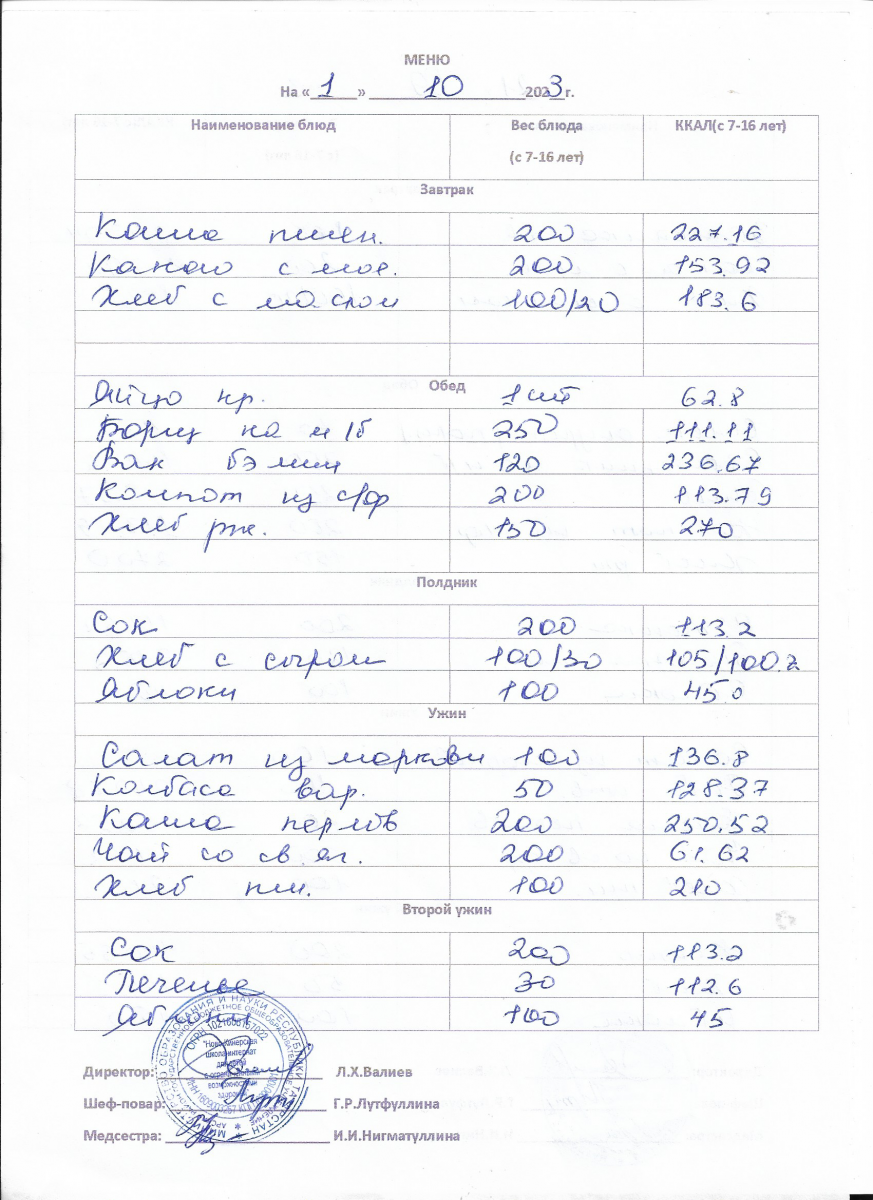 МЕНЮ
На «1» 10 2023г.
Наименование блюд Вес блюда (с 7-16 лет) ККАЛ(с 7-16 лет)
Завтрак
Каша пшен. 200 227.16
Какао с мол. 200 153.92
Хлеб с маслом 100/20 183.6
Обед
Яйцо кр. 1 шт 62.8
Борщ на м/б 250 111.11
Вак бэлиш 120 236.67
Компот из с/ф 200 113.79
Хлеб рж. 150 270
Полдник
Сок 200 113.2
Хлеб с сыром 100/30 105/100.2
Яблоки 100 45.0
Ужин
Салат из моркови 100 136.8
Колбаса вар. 50 128.37
Каша перлов 200 250.52
Чай со св яг. 200 61.62
Хлеб пш. 100 210
Второй ужин
Сок 200 113.2
Печенье 30 112.6
Яблоки 100 45
Директор: Л.Х.Валиев
Шеф-повар: Г.Р.Лутфуллина
Медсестра: И.И.Нигматуллина